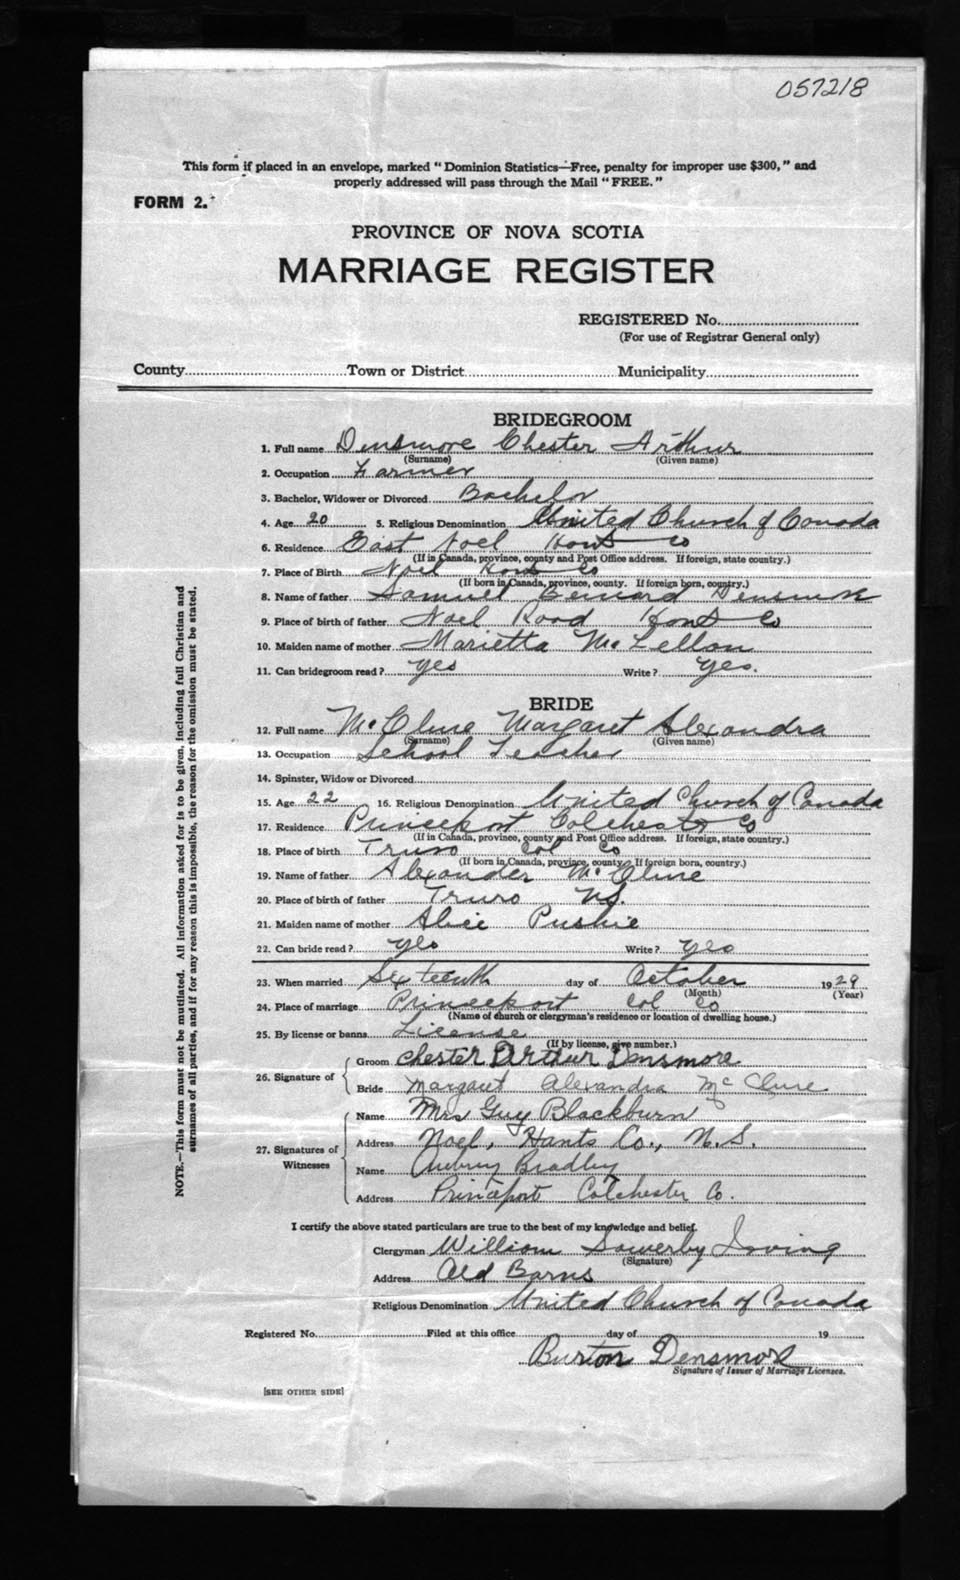 057218
This form if placed in an envelope, marked "Dominion Statistics—Free, penalty for improper use $300," and
properly addressed will pass through the Mail "FREE."
FORM 2.
PROVINCE OF NOVA SCOTIA
MARRIAGE REGISTER
REGISTERED No.
(For use of Registrar General only)
County Town or District Municipality
BRIDEGROOM
1. Full name Densmore Chester Arthur
(Surname) (Given name)
2. Occupation Farmer
3. Bachelor, Widower or Divorced Bachelor
4. Age 20 5. Religious Denomination United Church of Canada
6. Residence East Noel Hants Co
(If in Canada, province, county and Post Office address. If foreign, state country.)
7. Place of Birth Noel Hants Co
(If born in Canada, province, county. If foreign born, country.)
8. Name of father Samuel Densmore
9. Place of birth of father Noel Road Hants Co
10. Maiden name of mother Marietta McLellan
11. Can bridegroom read? yes Write? yes.
BRIDE
12. Full name McClure Margaret Alexandra
(Surname) (Given name)
13. Occupation School Teacher
14. Spinster, Widow or Divorced
15. Age 22 16. Religious Denomination United Church of Canada
17. Residence Princeport Colchester Co
(If in Canada, province, county and Post Office address. If foreign, state country.)
18. Place of birth Truro Col Co
(If born in Canada, province, county. If foreign born, country.)
19. Name of father Alexander McClure
20. Place of birth of father Truro N.S.
21. Maiden name of mother Alice Pushie
22. Can bride read? yes Write? yes
23. When married Sixteenth day of October 1929
(Month) (Year)
24. Place of marriage Princeport Col Co
(Name of church or clergyman's residence or location of dwelling house.)
25. By license or banns License
(If by license, give number.)
26. Signature of Groom Chester Arthur Densmore
Bride Margaret Alexandra McClure
27. Signatures of Witnesses Name Mrs Guy Blackburn
Address Noel, Hants Co., N.S.
Name Aubrey Bradley
Address Princeport Colchester Co.
I certify the above stated particulars are true to the best of my knowledge and belief.
Clergyman William Sowerby Irving
(Signature)
Address Old Barns
Religious Denomination United Church of Canada
Registered No. Filed at this office day of 19
Burton Densmore
Signature of Issuer of Marriage Licenses.
[SEE OTHER SIDE]
NOTE.—This form must not be mutilated. All information asked for is to be given, including full Christian and
surnames of all parties, and if for any reason this is impossible, the reason for the omission must be stated.